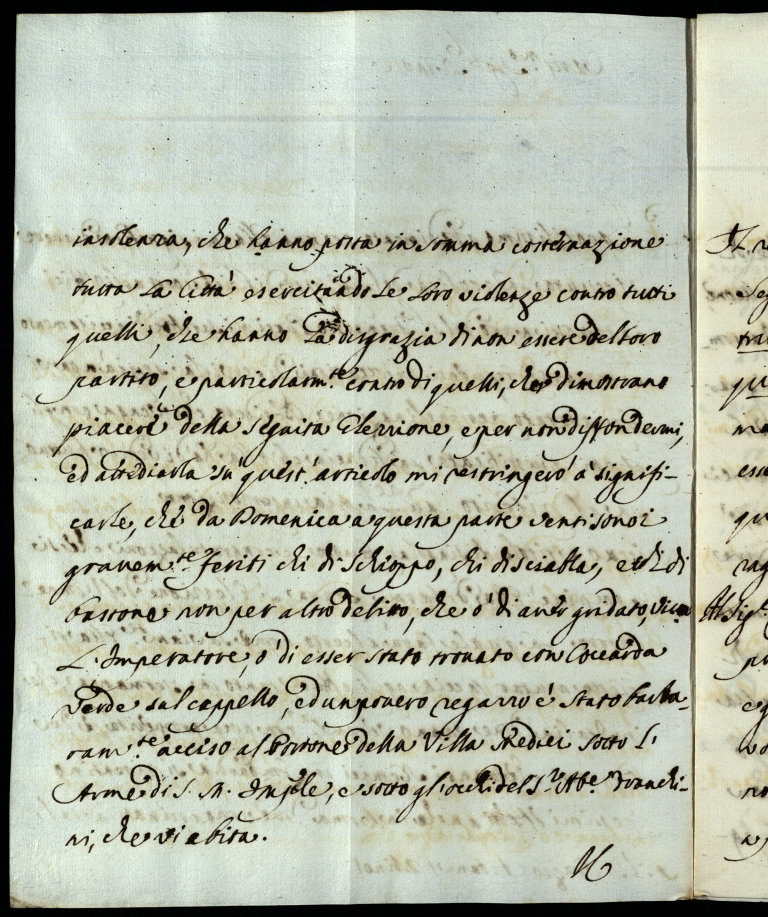 insolenza, che hanno posta in somma costernazione
tutta la Città esercitando le loro violenze contro tutti
quelli, che hanno la disgrazia di non essere del loro
partito, e particolarm.te contro di quelli, che dimostrano
piacere della seguita Elezzione, e per non diffondermi,
ed attediarla su quest'articolo mi restringerò à signifi-
carle, che da Domenica a questa parte venti sono i
gravem.te feriti chi di Schioppo, chi di sciabla, e chi di
bastone non per altro delitto, che ò di aver gridato, viva
L'Imperatore, ò di esser stato trovato con Coccarda
Verde sul cappello, ed un povero regazzo è stato barba-
ram.te ucciso al Portone della Villa Medici sotto l'
Arme di S. M. Imp.le, e sotto gl'occhi del S.r Ab.e Franchi-
ni, che vi abita.
Il
Al Sig.